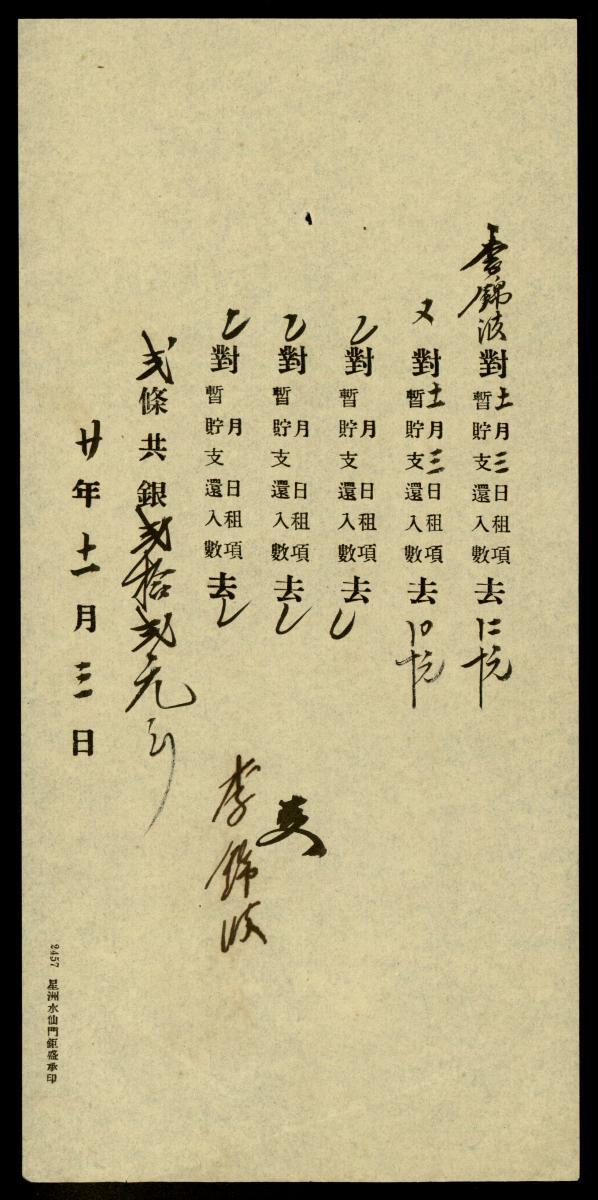 李錦波對十一月三日租項暫貯支還入數去〡二十元
又對十一月三日租項暫貯支還入數去〡〇十元
對月日租項暫貯支還入數去
對月日租項暫貯支還入數去
對月日租項暫貯支還入數去
弍條共銀弍拾弍元
廿年十一月三日
李錦波
2457 星洲水仙門鉅盛承印